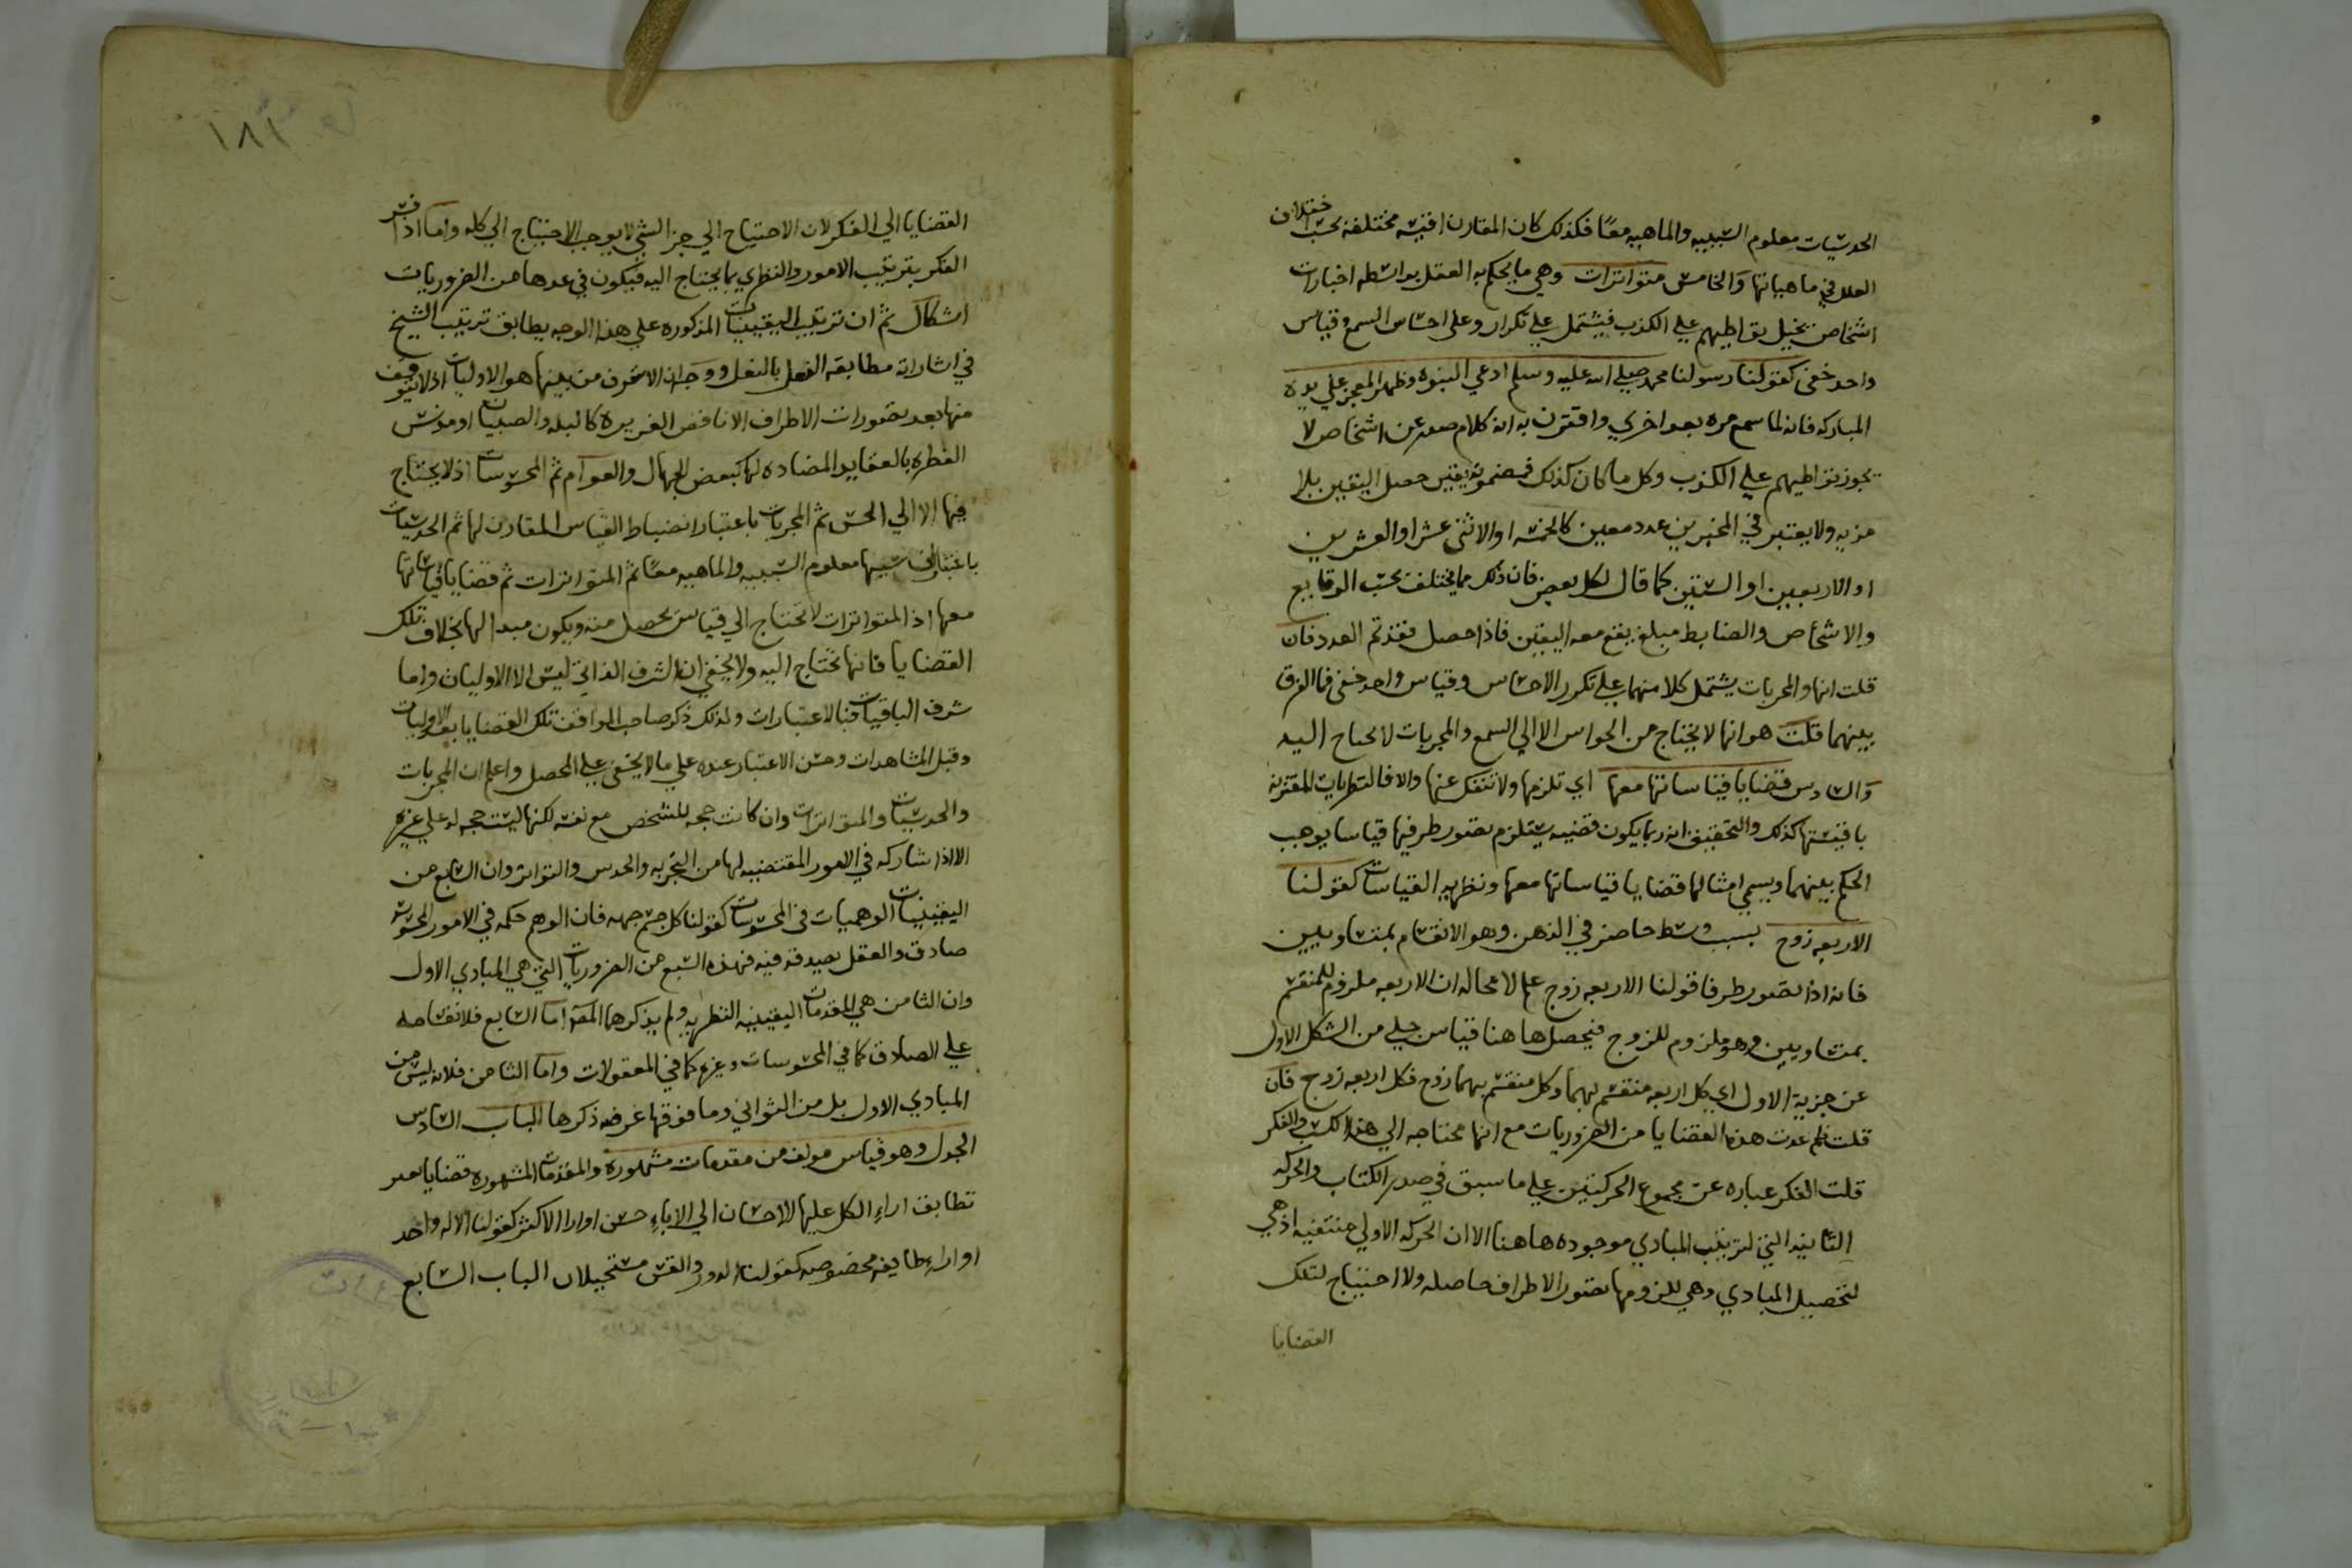 الحدسيات معلوم السببيه والماهيه معًا فكذلك كان المقارن اقيسه مختلفه بحسب اختلاف
العلل في ماهياتها والخامس متواترات وهي ما يحكم به العقل بواسطه اخبارات
اشخاص يخيل تواطيهم علي الكذب فيشتمل علي تكرار وعلي احساس السمع وقياس
واحد خفي كقولنا رسولنا محمد صلي الله عليه وسلم ادعي النبوه وظهر المعجز علي يده
المباركه فانه لما سمع مره بعد اخري واقترن به انه كلام صدر عن اشخاص لا
يجوز تواطيهم علي الكذب وكل ما كان كذلك فمضمونه يقين حصل اليقين بلا
مزيه ولا يعتبر في المخبرين عدد معين كالخمسه او الاثني عشر او العشرين
او الاربعين او الستين كما قال لكل بعض فان ذلك مما يختلف بحسب الوقايع
والاشخاص والضابط مبلغ يقع معه اليقين فاذا حصل فقد تم العدد فان
قلت انها والمجربات يشتمل كلا منهما علي تكرر الاحساس وقياس واحد خفي فما الفرق
بينهما قلت هو انها لا يحتاج من الحواس الا الي السمع والمجربات لا تحتاج اليه
والسادس قضايا قياساتها معها اي تلزمها ولا تنفك عنها والا فالنظريات المقترنة
باقيستها كذلك والتحقيق انه ربما يكون قضيه يستلزم تصور طرفيها قياسا يوجب
الحكم بينهما ويسمي امثالها قضايا قياساتها معها ونظريه القياسات كقولنا
الاربعه زوج بسبب وسط حاضر في الذهن وهو الانقسام بمتساويين
فانه اذا تصور طرفا قولنا الاربعه زوج علم لا محاله ان الاربعه ملزوم للمنقسم
بمتساويين وهو ملزوم للزوج فيحصل هاهنا قياس جلي من الشكل الاول
عن جزية الاول اي كل اربعه منقسم بهما وكل منقسم بهما زوج فكل اربعه زوج فان
قلت فلم عدت هذه القضايا من الضروريات مع انها محتاجه الي هذا الكسب والفكر
قلت الفكر عباره عن مجموع الحركتين علي ما سبق في صدر الكتاب والحركه
الثانيه التي لترتيب المبادي موجوده هاهنا الا ان الحركه الاولي منتفيه اذ هي
لتحصيل المبادي وهي للزومها تصور الاطراف حاصله ولا احتياج لتلك
القضايا
١٨١
القضايا الي الفكر لان الاحتياج الي جز الشي لا يوجب الاحتياج الي كله واما اذا فسر
الفكر بترتيب الامور والنظري بما يحتاج اليه فيكون في عدها من الضروريات
اشكال ثم ان ترتيب اليقينيات المذكوره علي هذا الوجه يطابق ترتيب الشيخ
في اشاراته مطابقه النعل بالنعل ووجهه ان الاعرف من بينها هو الاوليات اذ لا يتوقف
منها بعد تصورات الاطراف الا ناقص الغريزه كالبله والصبيان او مدنس
الفطره بالعقايد المضاده لها كبعض الجهال والعوام ثم المحسوسات اذ لا يحتاج
فيها الا الي الحس ثم المجربات باعتبار انضباط القياس المقارن لها ثم الحدسيات
باعتبار ان سببها معلوم السببيه والماهيه معًا ثم المتواترات ثم قضايا قياساتها
معها اذ المتواترات لا تحتاج الي قياس يحصل منه ويكون مبدا لها بخلاف تلك
القضايا فانها تحتاج اليه ولا يخفي ان الشرف الذاتي ليس الا الاوليات واما
شرف الباقيات فبالاعتبارات ولذلك ذكر صاحب المواقف تلك القضايا بعد الاوليات
وقبل المشاهدات وحسن الاعتبار عنده علي ما لا يخفي علي المحصل واعلم ان المجربات
والحدسيات والمتواترات وان كانت حجه للشخص مع نفسه لكنها ليست حجه له علي غيره
الا اذا شاركه في الامور المقتضيه لها من التجربه والحدس والتواتر وان السابع من
اليقينيات الوهميات في المحسوسات كقولنا كل جسم جهه فان الوهم حكمه في الامور المحسوسه
صادق والعقل يصدقه فيه فهذه السبع من الضروريات التي هي المبادي الاول
وان الثامن هي المقدمات اليقينيه النظريه ولم يذكرها المص اما السابع فلانقسامه
علي الصادق كما في المحسوسات وغيره كما في المعقولات واما الثامن فلانه ليس من
المبادي الاول بل من الثواني وما فوقها غرضه ذكرها الباب السادس
الجدل وهو قياس مولف من مقدمات مشهوره والمقدمات المشهوره قضايا
تطابق اراء الكل عليها الاحسان الي الاباء حسن او اراء الاكثر كقولنا الاله واحد
او اراء طايفه مخصوصه كقولنا الدور والتس مستحيلان الباب السابع